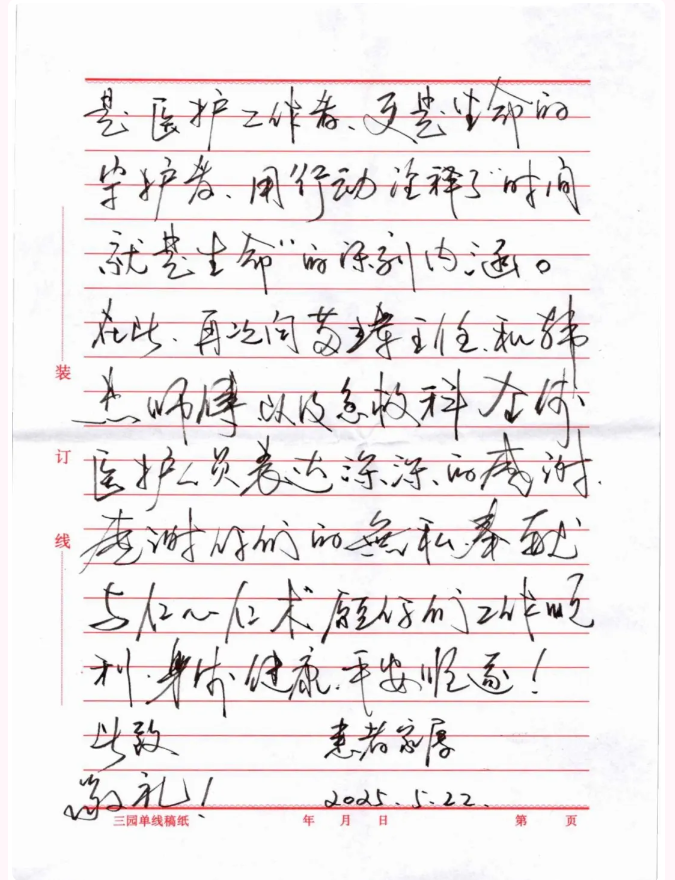 是医护工作者、更是生命的
守护者、用"行动诠释了"时间
就是生命"的深刻内涵。
在此、再次向 主任、和韩
师傅以及急救科全体
医护人员表达深深的感谢、
感谢你们的無私奉献
与仁心仁术 愿你们工作顺
利、身体健康、平安顺遂！
此致 患者家属
敬礼！ 2025.5.22.
装
订
线
三园单线稿纸 年 月 日 第 页